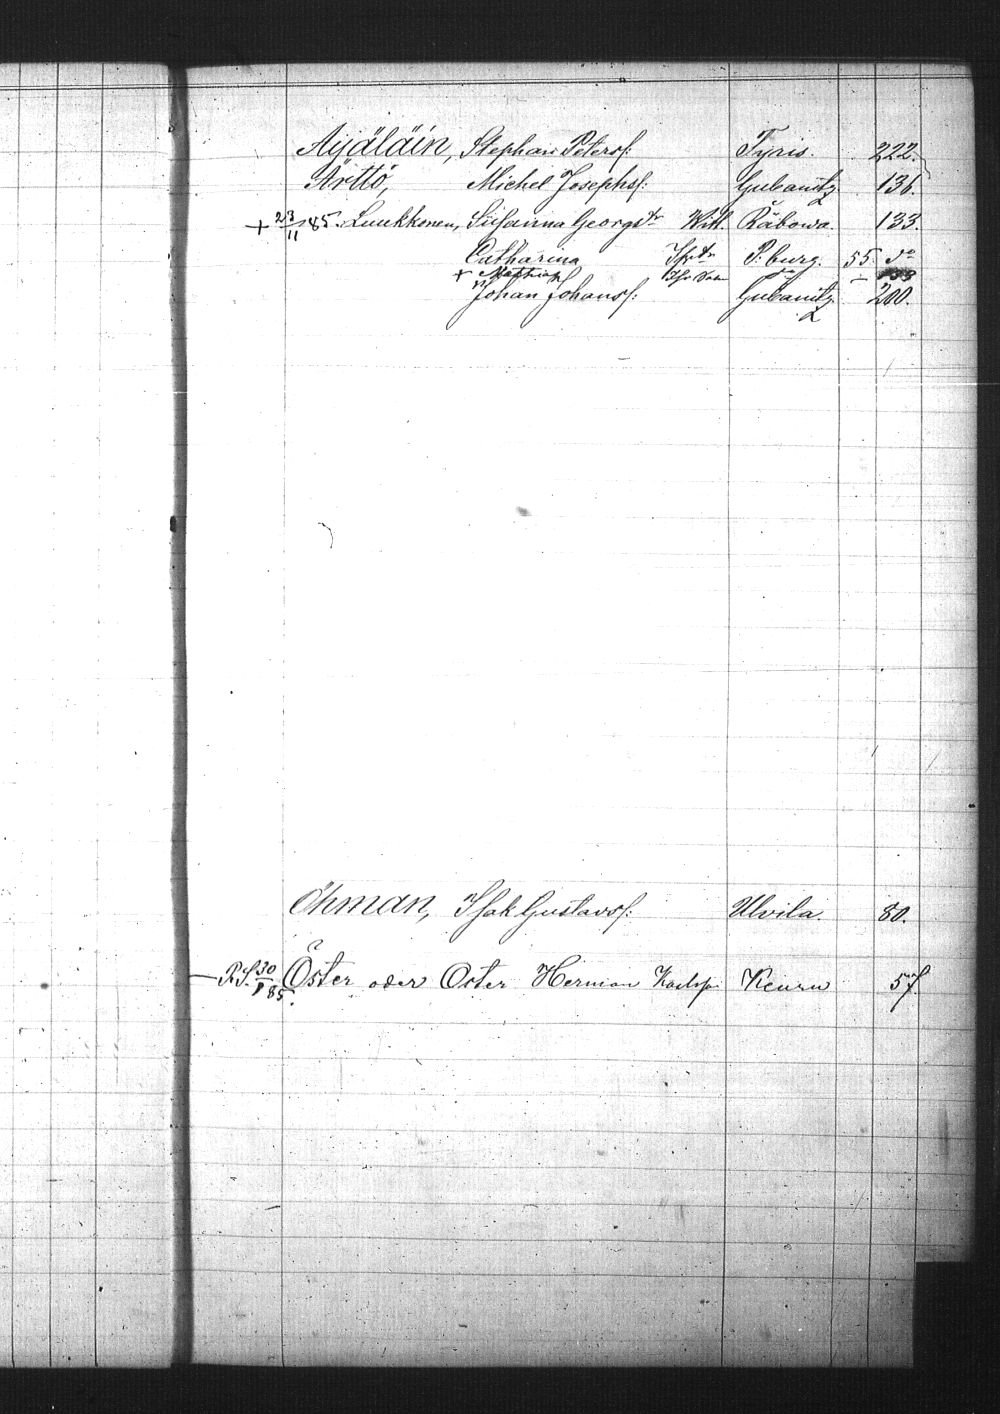 Äijäläin, Stephan Peters f: Tyris. 222.
Ärttö, Michel Josephs f: Gubanitz 136.
+ 23/11 85. Luukkonen, Susanna Georgs tr Witt. Räbowa. 133.
Catharina Ihr tr P:burg. 55. do
+ Mathias Ihr Sohn do - 133
Johan Johans f: Gubanitz 200.
Öhman, Isak Gustavs f: Ulvila 80.
30/ 85. Öster oder Oster Herman Karlss Keuru 57.